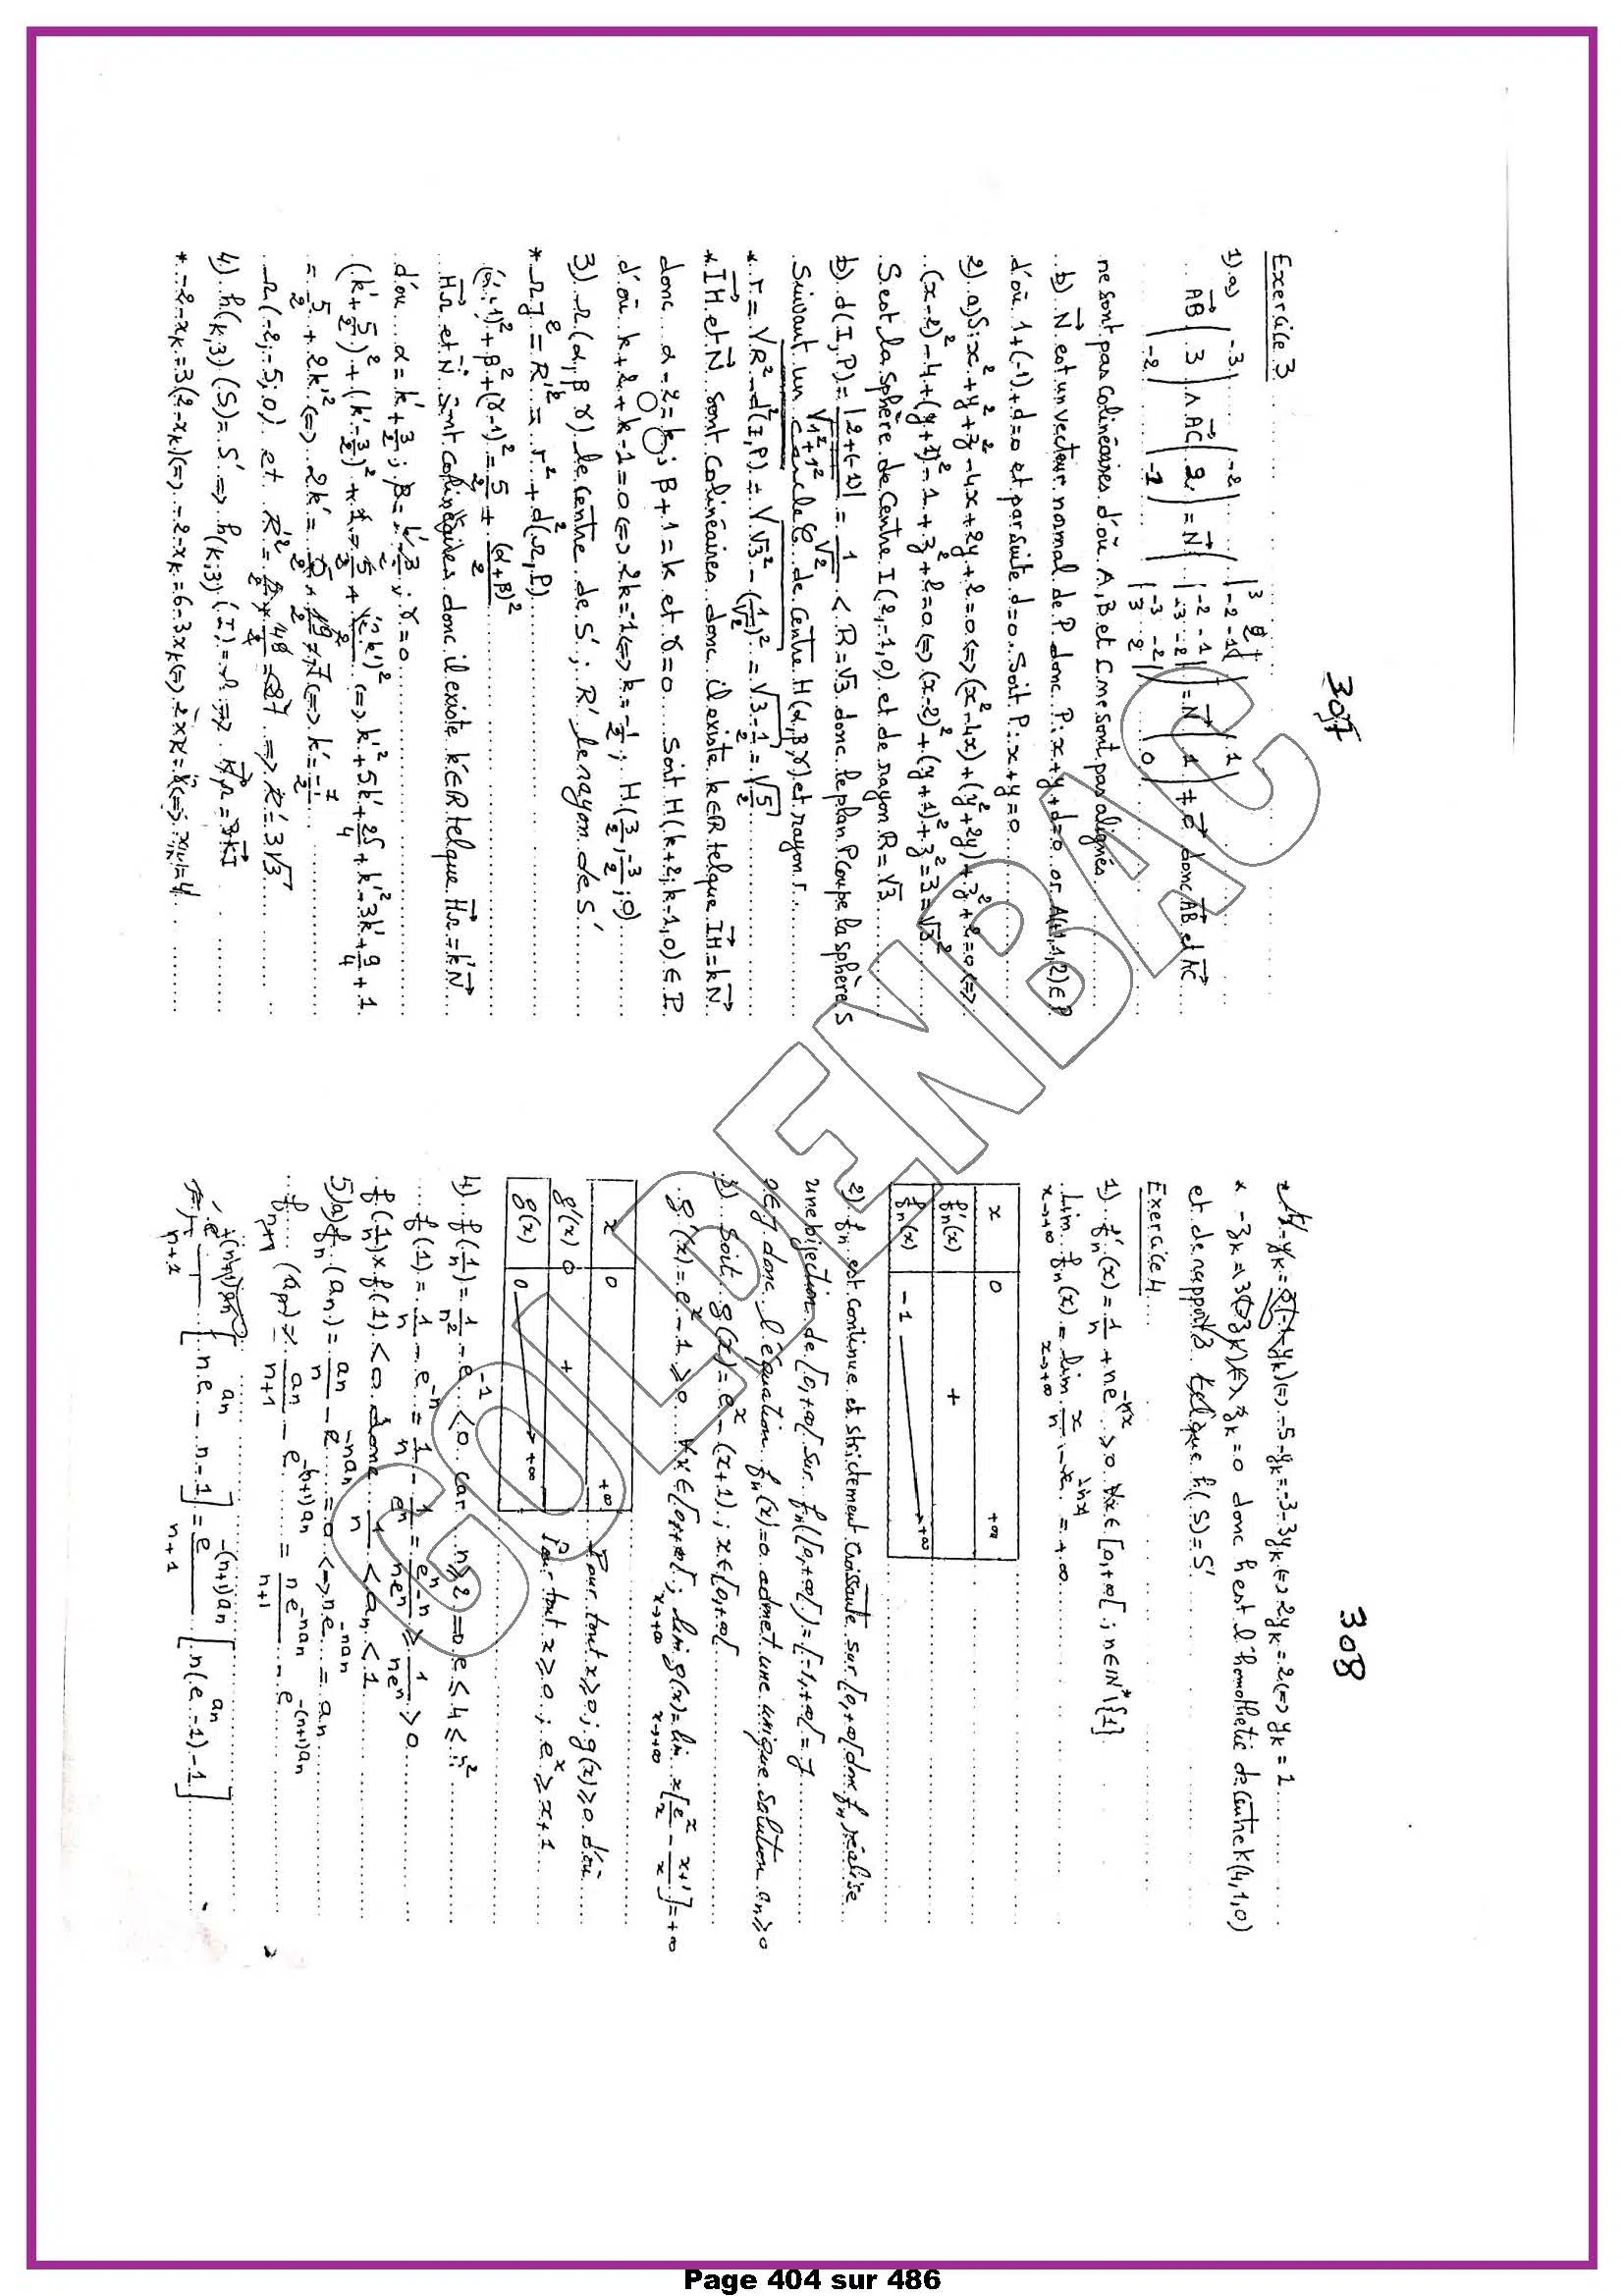 307
Exercice 3
1) a)
AB | -3 3 -2 | ∧ AC | -2 2 -1 | = N | 1 1 0 | ≠ 0 donc AB et AC
ne sont pas colinéaires d'où A, B et C ne sont pas alignés
b) N est un vecteur normal de P donc P: x+y+d=0 or A(-1,1,2) ∈ P
d'où 1+(-1)+d=0 et par suite d=0. Soit P: x+y=0
2) a) S: x²+y²+z²-4x+2y+2=0 <=> (x²-4x)+(y²+2y)+z²+2=0 <=>
(x-2)²-4+(y+1)²-1+z²+2=0 <=> (x-2)²+(y+1)²+z²=3=√3²
S est la sphère de centre I(2,-1,0) et de rayon R=√3
b) d(I,P)= |2+(-1)| / √1²+1² = 1/√2 < R=√3 donc le plan P coupe la sphère S
Suivant un cercle C de centre H(α,β,γ) et rayon r
* r = √R²-d²(I,P) = √√3²-(1/√2)² = √3-1/2 = √5/2
* IH et N sont colinéaires donc il existe k∈R tel que IH = kN
donc α-2=k; β+1=k et γ=0 Soit H(k+2; k-1, 0) ∈ P
d'où k+2+k-1=0 <=> 2k=-1 <=> k=-1/2 ; H(3/2, -3/2, 0)
3) Ω(α,β,γ) le centre de S' ; R' le rayon de S'
* ΩJ² = R'² = r²+d²(Ω,P)
(α+1)²+β²+(γ-1)² = 5/2 + (α+β)²/2
HΩ et N sont colinéaires donc il existe k'∈R tel que HΩ = k'N
d'où α=k'+3/2 ; β=k'-3/2 ; γ=0
(k'+5/2)²+(k'-3/2)²+1 = 5/2 + (k'+k')²/2 <=> k'²+5k'+25/4+k'²-3k'+9/4+1
= 5/2+2k'² <=> 2k' = <=> k'=-7/2
Ω(-2;-5,0) et R'² = = 27 => R'=3√3
4) h(k,3)(S)=S' => h(k;3)(I)=Ω => KΩ=3KI
* -2-xk=3(2-xk) <=> -2-xk=6-3xk <=> 2xk=8 <=> xk=4
308
<=> -5-yk=-3-3yk <=> 2yk=2 <=> yk=1
* -zk=3(0-zk) <=> zk=0 donc h est l'homothétie de centre K(4,1,0)
et de rapport 3 telque h(S)=S'
Exercice 4
1) fn'(x)= 1/n + ne^-nx > 0 ∀x∈[0,+∞[ ; n∈N*\{1}
lim fn(x) = lim x/n - e^-nx = +∞
x→+∞ x→+∞
x 0 +∞
fn'(x) +
fn(x) -1 +∞
2) fn est continue et strictement croissante sur [0,+∞[ donc fn réalise
une bijection de [0,+∞[ sur fn([0,+∞[)=[-1,+∞[=J
0∈J donc l'équation fn(x)=0 admet une unique solution an ≥0
3) Soit g(x)=e^x-(x+1) ; x∈[0,+∞[
g'(x)=e^x-1≥0 ∀x∈[0,+∞[ ; lim g(x)=lim x[e^x/x - x+1/x]=+∞
x→+∞ x→+∞
x 0 +∞
g'(x) 0 +
g(x) 0 +∞
Pour tout x≥0 ; g(x)≥0 d'où
Pour tout x≥0 ; e^x≥x+1
4) f(1/n)= 1/n² - e^-1 <0 car n≥2 => e≤4≤n²
f(1)= 1/n - e^-n = 1/n - 1/e^n = e^n-n / ne^n ≥ 1/ne^n >0
f(1/n)×f(1)<0 donc 1/n < an < 1
5) a) fn(an)= an/n - e^-nan =0 <=> ne^-nan = an
fn+1(an)= an/n+1 - e^-(n+1)an = ne^-nan/n+1 - e^-(n+1)an
[ne^an - n - 1] = e^-(n+1)an / n+1 [n(e^an-1)-1]
GOLDENBAC
Page 404 sur 486